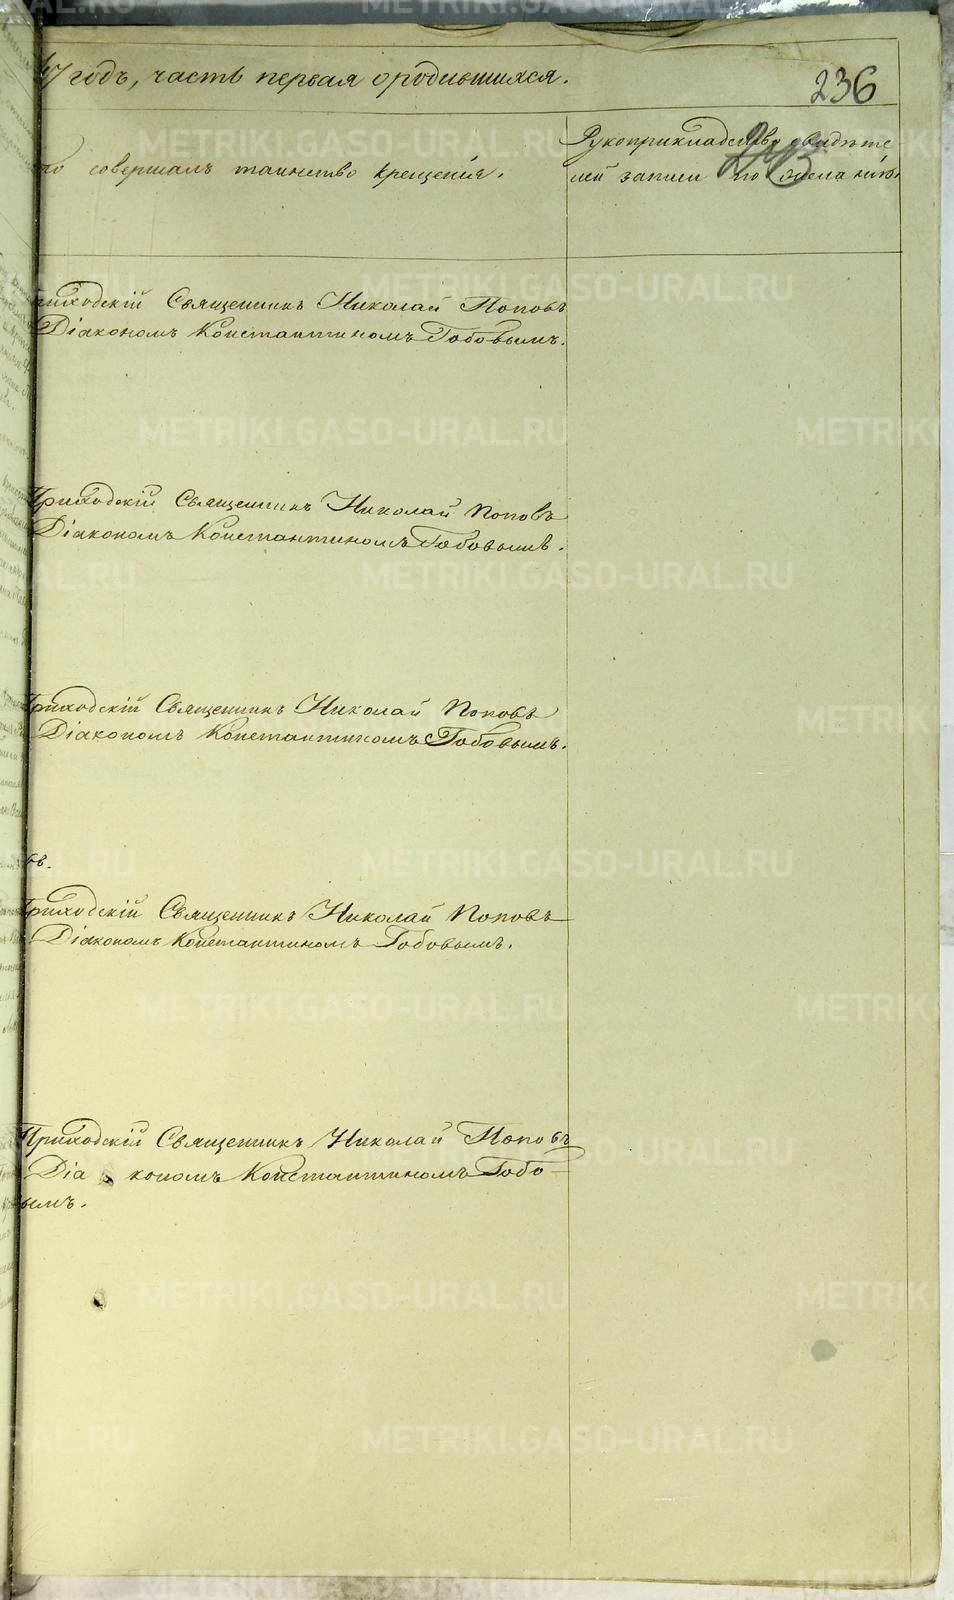 7 годъ, часть первая о родившихся.
236
совершалъ таинство крещенія.
Рукоприкладство свидѣте
лей записи по желанію.
Приходскій Священникъ Николай Поповъ
Діакономъ Константиномъ Гобовымъ.
Приходскій Священникъ Николай Поповъ
Діакономъ Константиномъ Гобовымъ.
Приходскій Священникъ Николай Поповъ
Діакономъ Константиномъ Гобовымъ.
Приходскій Священникъ Николай Поповъ
Діакономъ Константиномъ Гобовымъ.
Приходскій Священникъ Николай Поповъ
Діакономъ Константиномъ Гобо-
вымъ.
METRIKI.GASO-URAL.RU